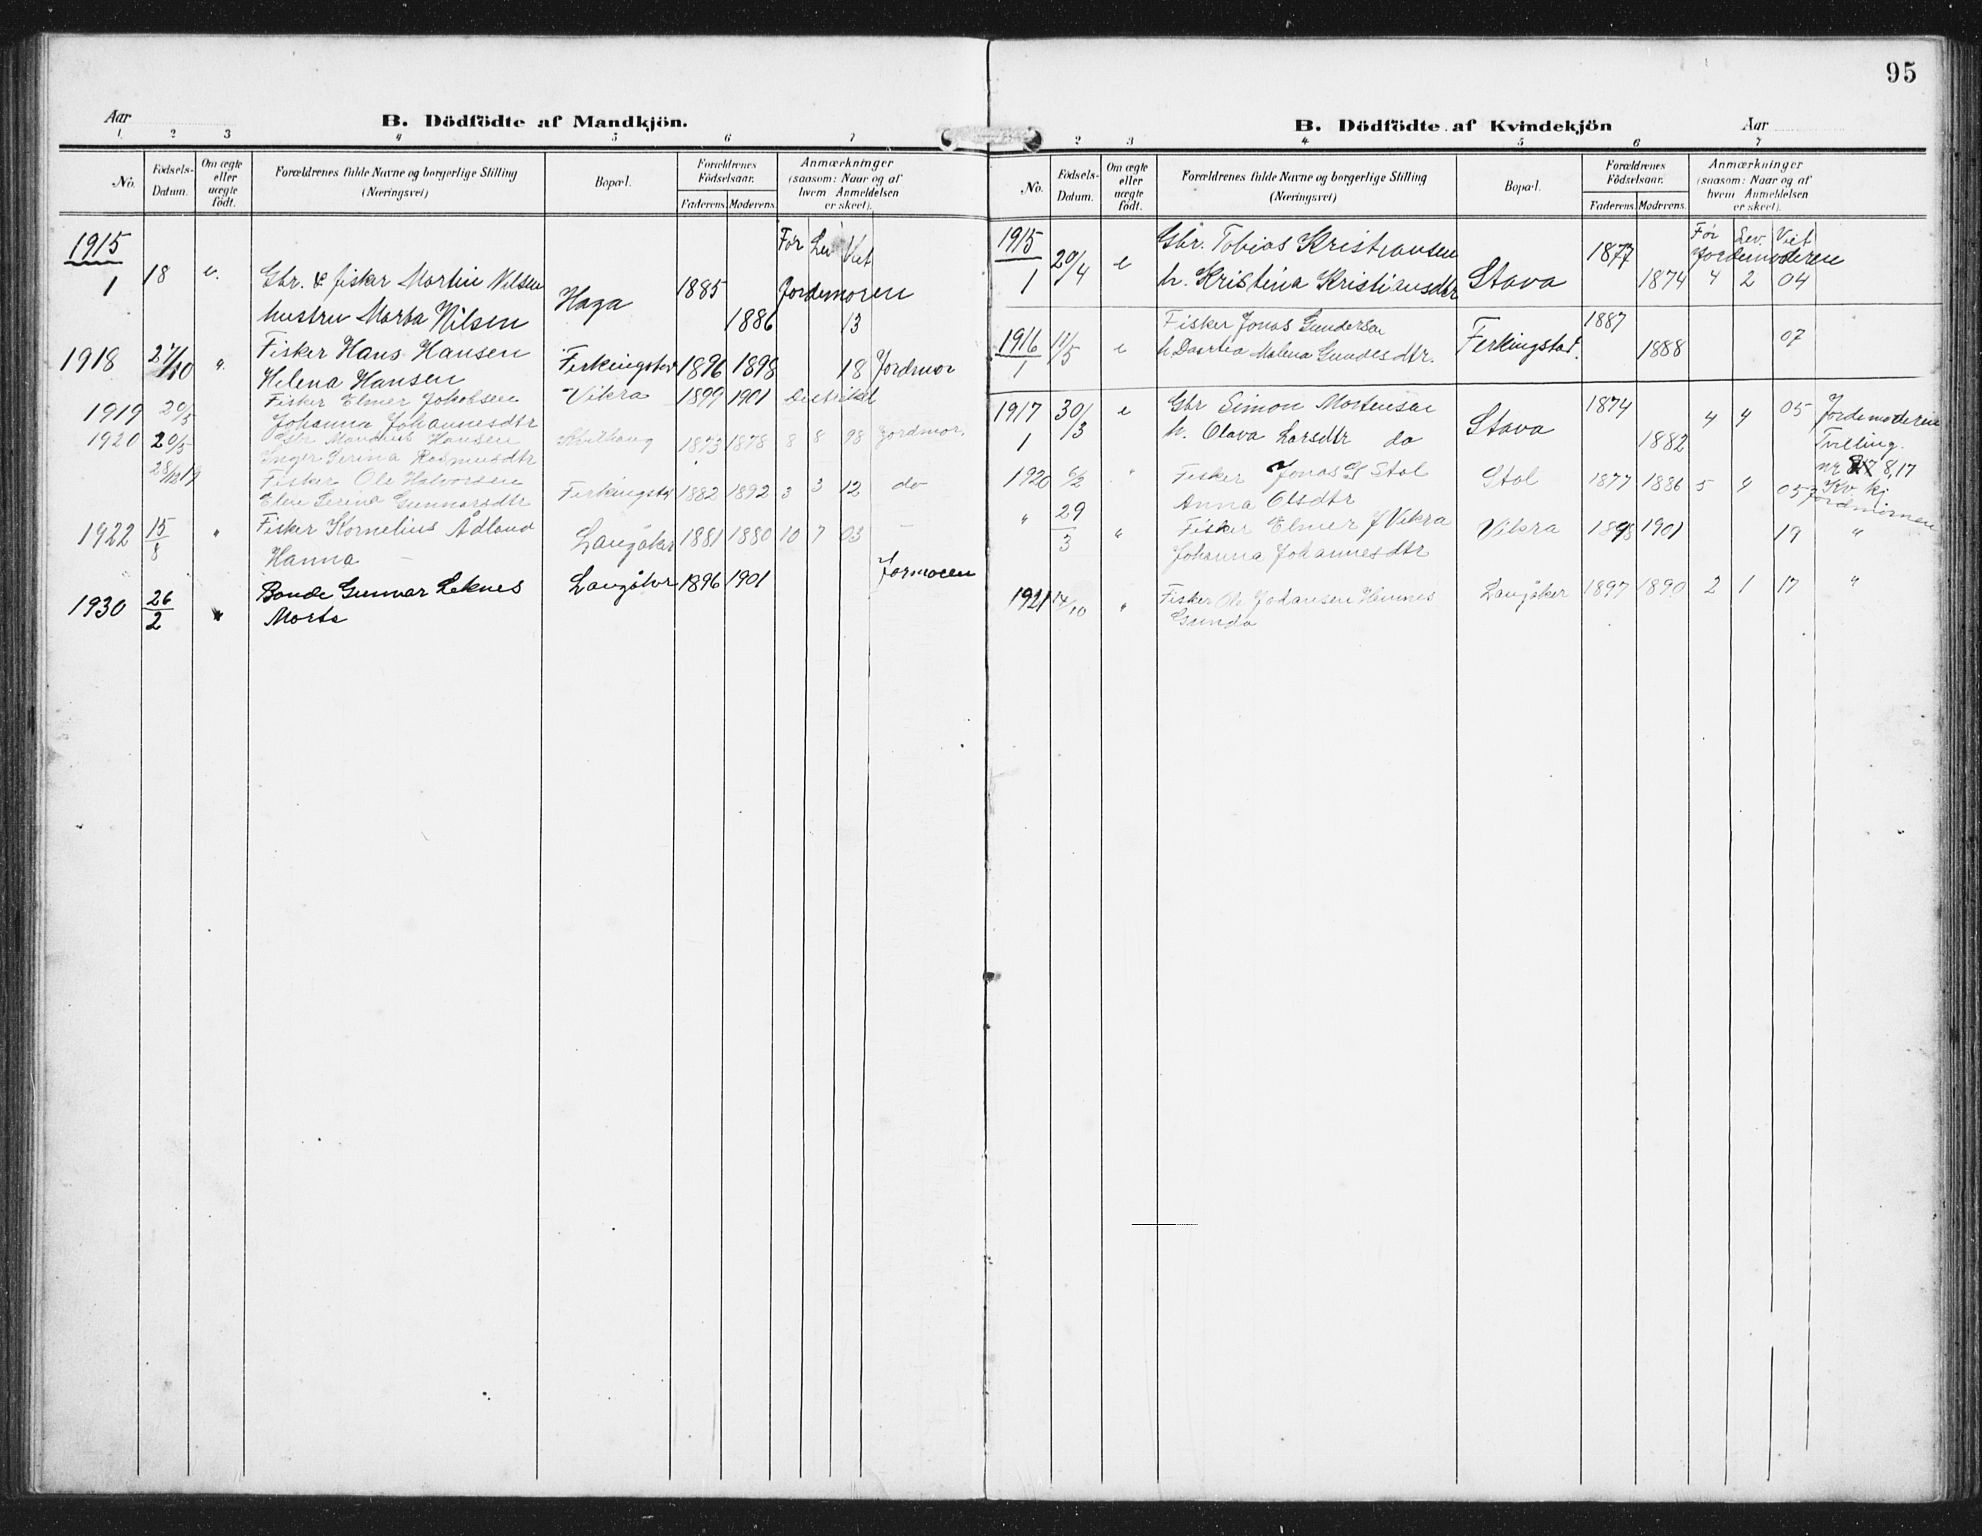 95
Aar
B. Dödfödte af Mandkjön.
1 2 3 4 5 6 7
No. Födsels-Datum. Om ægte eller uægte födt. Forældrenes fulde Navne og borgerlige Stilling (Næringsvei) Bopæl. Forældrenes Födselsaar. Faderens. Moderens. Anmærkninger (saasom: Naar og af hvem Anmeldelsen er skeet).
1915 Før Lev Viet
1 18 Gbr. & fisker Martin Nilsen Haga 1885 Jordemoren
hustru Marta Nilsen 1886 13
1918 27/10 " Fisker Hans Hansen Ferkingstad 1896 1898 18 Jordmor
Helena Hansen
1919 20/5 Fisker Elmer Jakobsen Vikra 1899 1901 Distrikt
Johanna Johannesdtr
1920 20/5 Gbr Mandius Hansen 1873 1878 8 8 98 Jordmor.
Inger Serina Rasmusdtr
28/12 19 Fisker Ole Halvorsen Ferkingstad 1882 1892 3 3 12 do
Elen Serina Gunnarsdtr
1922 15/8 " Fisker Kornelius Ådland Langåker 1881 1880 10 7 03 —
Hanna —
1930 26/2 " Bonde Gunnar Leknes Langåker 1896 1901 Jormoren
Marta
B. Dödfödte af Kvindekjön
Aar
2 3 4 5 6 7
No. Födsels-Datum. Om ægte eller uægte födt. Forældrenes fulde Navne og borgerlige Stilling (Næringsvei) Bopæl. Forældrenes Födselsaar. Faderens. Moderens. Anmærkninger (saasom: Naar og af hvem Anmeldelsen er skeet).
1915 20/4 e Gbr. Tobias Kristiansen 1877 Før Lev. Viet Jordemoderen
1 h. Kristina Kristiansdtr Stava 1874 4 2 04
1916 11/5 e Fisker Jonas Gundersen Ferkingstad. 1887 07
1 h. Malena Gundesdtr. 1888
1917 30/3 e Gbr Simon Mortensen Stava 1874 4 4 05 Jordemoderen
1 h. Olava Larsdtr do 1882 Tvilling.
nr 8,17
Kv kj
1920 6/2 " Fisker Jonas G Stol Stol 1877 1886 5 4 05 Jordmoren
Anna Olsdtr
" 29/3 " Fisker Elmer J Vikra Vikra 1898 1901 19 "
Johanna Johannesdtr
1921 14/10 " Fisker Ole Johansen Hannes Langåker 1897 1890 2 1 17 "
Gunda